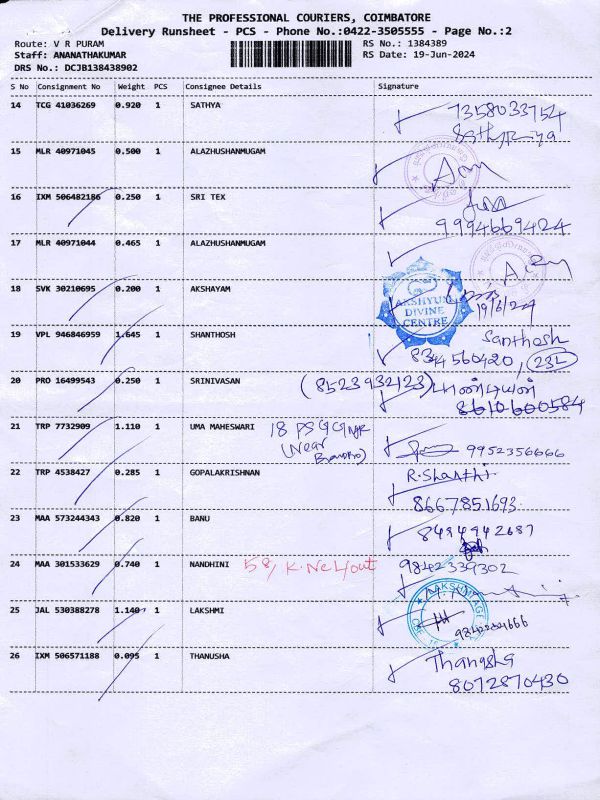 THE PROFESSIONAL COURIERS, COIMBATORE
Delivery Runsheet - PCS - Phone No.:0422-3505555 - Page No.:2
Route: V R PURAM RS No.: 1384389
Staff: ANANATHAKUMAR RS Date: 19-Jun-2024
DRS No.: DCJB138438902
S No Consignment No Weight PCS Consignee Details Signature
14 TCG 41036269 0.920 1 SATHYA 7358033754
Sathpriya
15 MLR 40971045 0.500 1 ALAZHUSHANMUGAM
16 IXM 506482186 0.250 1 SRI TEX
9994669424
17 MLR 40971044 0.465 1 ALAZHUSHANMUGAM
18 SVK 30210695 0.200 1 AKSHAYAM
DIVINE
CENTRE
19/6/24
19 VPL 946846959 1.645 1 SHANTHOSH Santhosh
8344560420, 23L
20 PRO 16499543 0.250 1 SRINIVASAN (8523932123) பாண்டியன்
8610600584
21 TRP 7732909 1.110 1 UMA MAHESWARI 18 PSG
(Near
9952356666
22 TRP 4538427 0.285 1 GOPALAKRISHNAN R.Shanthi
8667851693
23 MAA 573244343 0.820 1 BANU 8494942687
24 MAA 301533629 0.740 1 NANDHINI 58, K.N 9842339302
25 JAL 530388278 1.140 1 LAKSHMI
26 IXM 506571188 0.095 1 THANUSHA Thanusha
8072870430